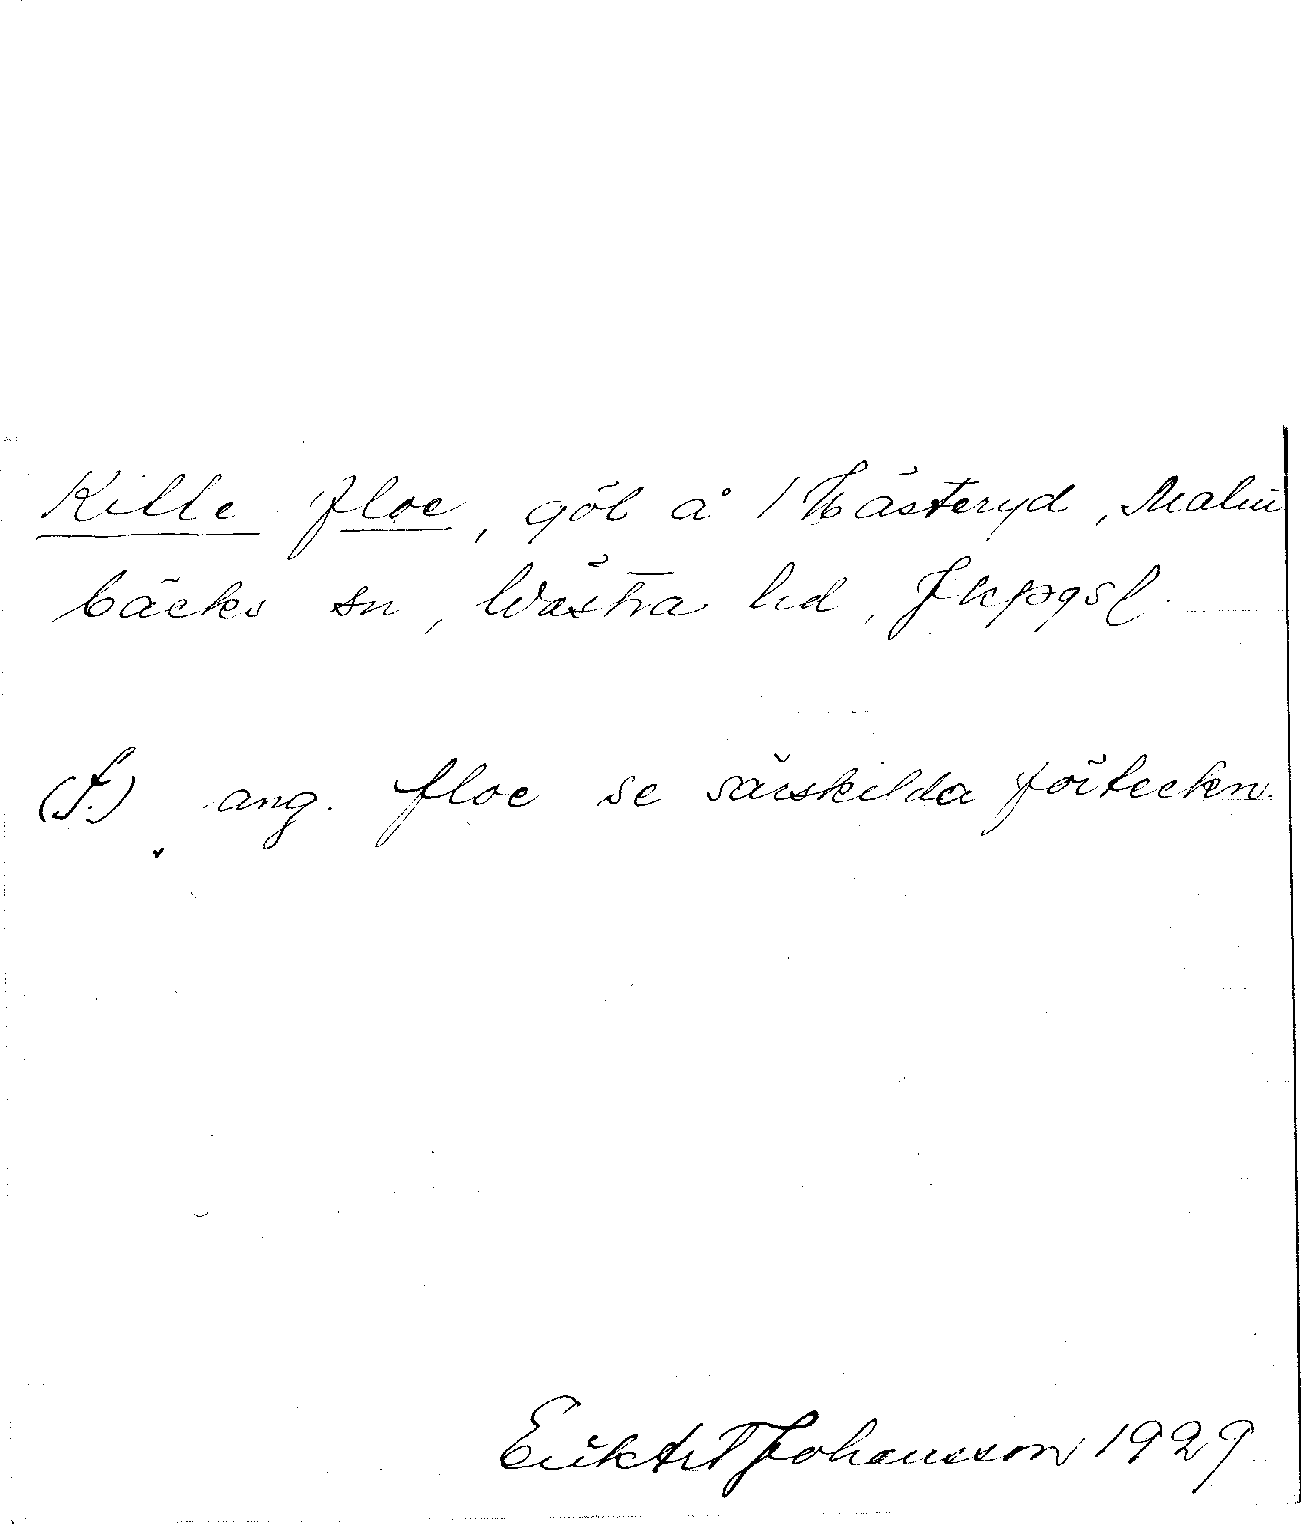 Kille floe, göl å / Hästeryd, Malm
bäcks sn, Västra hd, Jkpgsl.
(f.) ang. floe se särskilda förteckn.
Johansson 1929